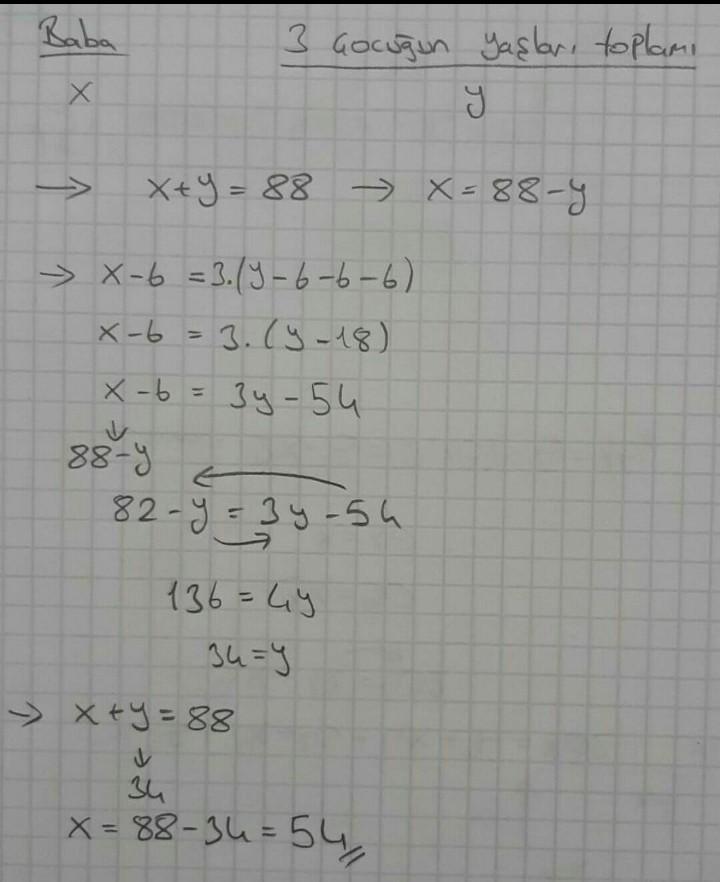 Baba 3 çocuğun yaşları toplamı
x y
→ x+y = 88 → x = 88-y
→ x-6 = 3.(y-6-6-6)
x-6 = 3.(y-18)
x-6 = 3y-54
↓
88-y
82-y = 3y-54
136 = 4y
34 = y
→ x+y = 88
↓
34
x = 88-34 = 54